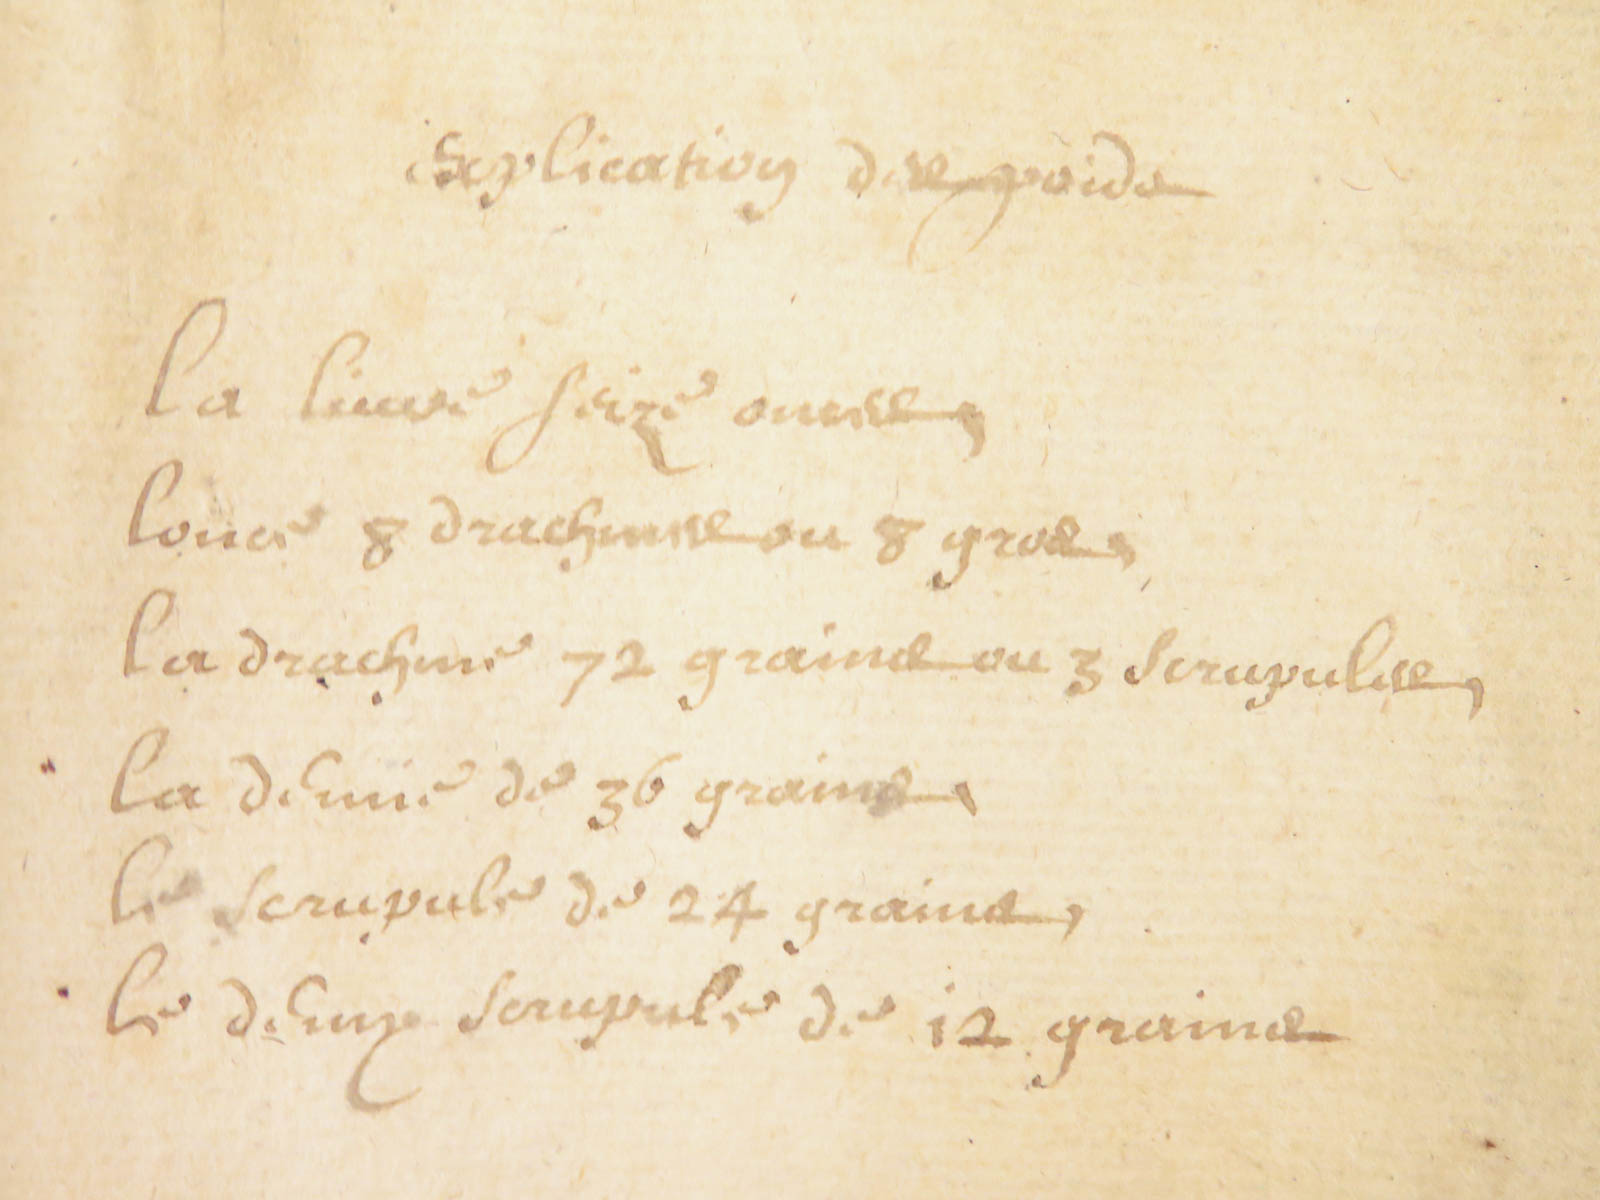 Explication des poids
La liuvre seize onces,
lonce 8 drachmes ou 8 gros,
La drachme 72 grains ou 3 scrupules,
La demie de 36 grains,
Le scrupule de 24 grains,
Le demy scrupule de 12 grains